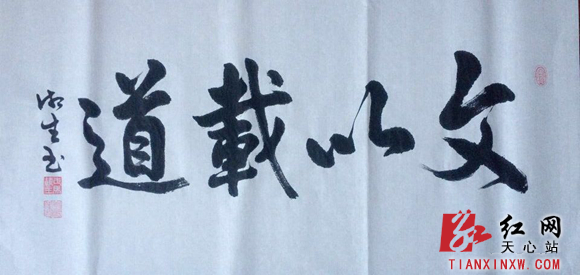 文以載道
红网
天心站
TIANXINXW.COM